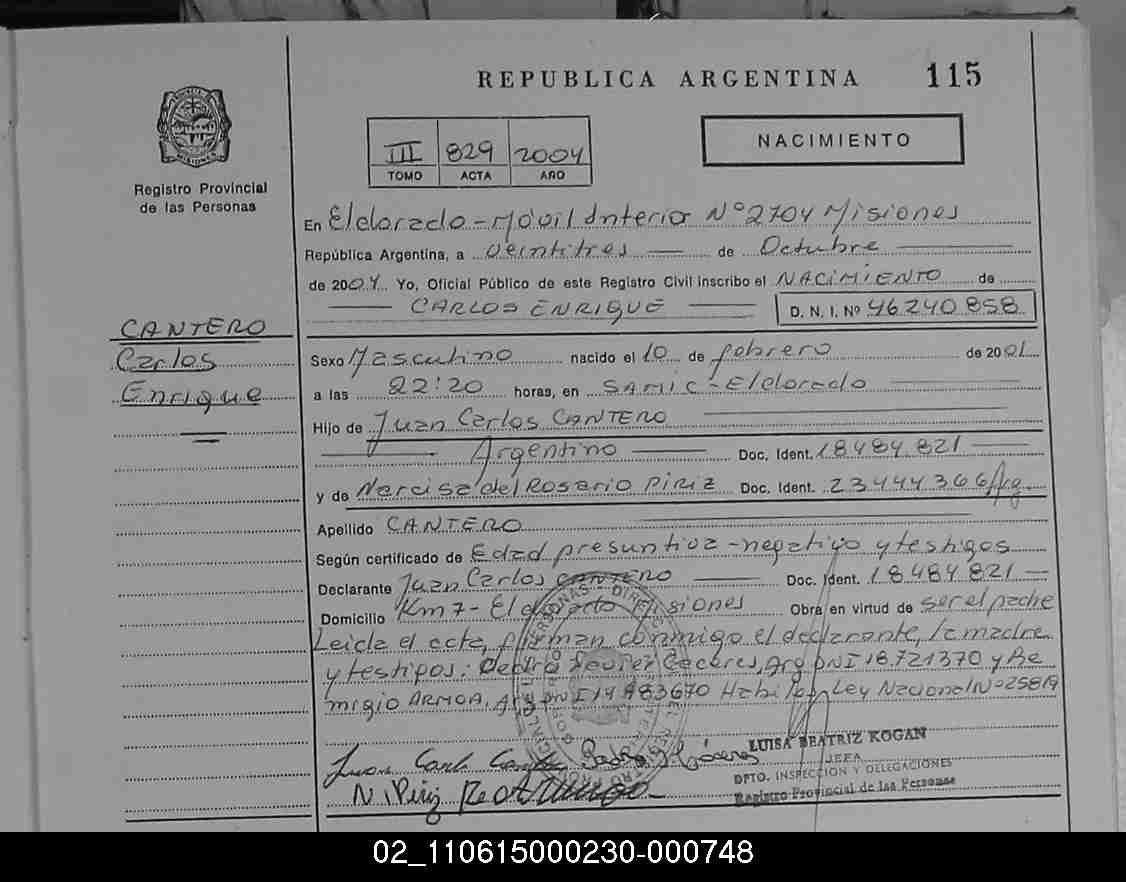 REPUBLICA ARGENTINA 115
MISIONES
Registro Provincial
de las Personas
III 829 2004
TOMO ACTA AÑO
NACIMIENTO
En Eldorado - Móvil Interior Nº 2704 Misiones
República Argentina, a veintitres de Octubre
de 2004 Yo, Oficial Público de este Registro Civil inscribo el NACIMIENTO de
CARLOS ENRIQUE D. N. I. Nº 46240858
CANTERO
Carlos
Enrique
Sexo Masculino nacido el 10 de febrero de 2001
a las 22:20 horas, en SAMIC - Eldorado
Hijo de Juan Carlos CANTERO
Argentino Doc. Ident. 18484.821
y de Narcisa del Rosario PIRIZ Doc. Ident. 23444366 Arg.
Apellido CANTERO
Según certificado de Edad presuntiva - negativo y testigos
Declarante Juan Carlos CANTERO Doc. Ident. 18484821
Domicilio Km 7 - Eldorado Misiones Obra en virtud de ser el padre
Leida el acta, firman conmigo el declarante, la madre
y testigos: Javier Caceres, Arg DNI 18.721370 y Re
migio ARMOA, Arg DNI 14983670 Ley Nacional Nº 25819
LUISA BEATRIZ KOGAN
JEFA
DPTO. INSPECCION Y DELEGACIONES
Registro Provincial de las Personas
N. Piriz
02_110615000230-000748